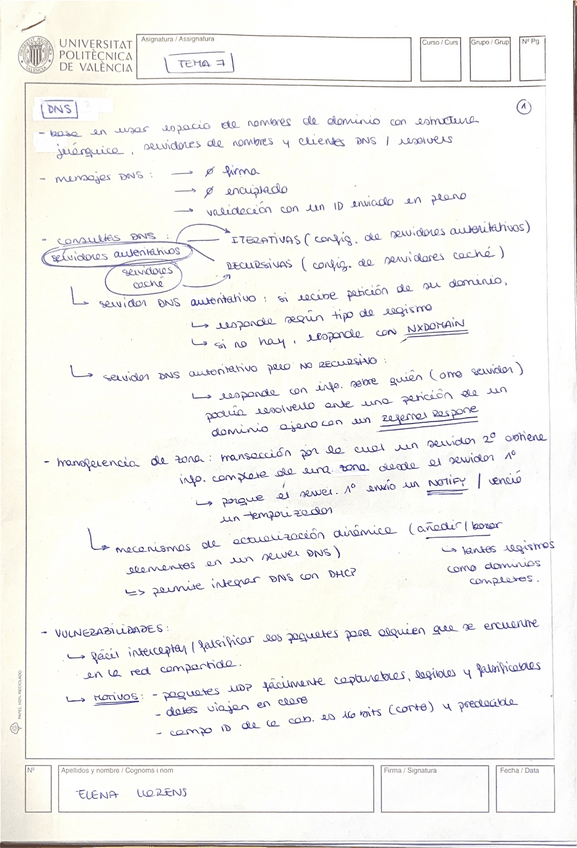 UNIVERSITAT
POLITÈCNICA
DE VALÈNCIA
Asignatura / Assignatura
TEMA 7
Curso / Curs
Grupo / Grup
Nº Pg
DNS
1
- basa en usar espacio de nombres de dominio con estructura
jerárquica, servidores de nombres y clientes DNS / resolvers
- mensajes DNS : → ∅ firma
→ ∅ encriptado
→ validación con un ID enviado en plano
- consultas DNS : → ITERATIVAS (config. de servidores autoritativos)
servidores autoritativos
RECURSIVAS (config. de servidores caché)
servidores
caché
↳ servidor DNS autoritativo : si recibe petición de su dominio,
↳ responde según tipo de registro
↳ si no hay, responde con NXDOMAIN
↳ servidor DNS autoritativo pero NO RECURSIVO :
↳ responde con info. sobre quién (otro servidor)
podría resolverlo ante una petición de un
dominio ajeno con un referral Respone
- transferencia de zona : transacción por la cual un servidor 2º obtiene
info. completa de una zona desde el servidor 1º
↳ porque el server 1º envío un NOTIFY / venció
un temporizador
↳ mecanismos de actualización dinámica (añadir / borrar
elementos en un server DNS)
↳ tantos registros
como dominios
completos.
↳ permite integrar DNS con DHCP
- VULNERABILIDADES :
↳ fácil interceptar / falsificar los paquetes para alguien que se encuentre
en la red compartida.
↳ MOTIVOS : - paquetes UDP fácilmente capturables, legibles y falsificables
- datos viajan en claro
- campo ID de la cab. es 16 bits (corto) y predecible
PAPEL 100% RECICLADO
Nº
Apellidos y nombre / Cognoms i nom
ELENA LLORENS
Firma / Signatura
Fecha / Data